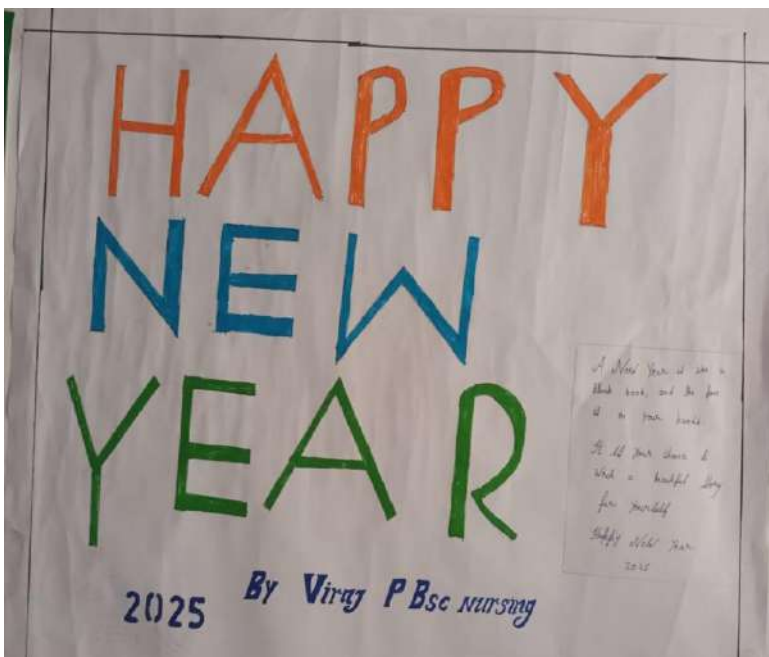 HAPPY
NEW
YEAR
A New Year is like a
blank book, and the pen
is in your hands.
It is your chance to
write a beautiful story
for yourself
Happy New Year
2025
2025 By Viraj P Bsc Nursing